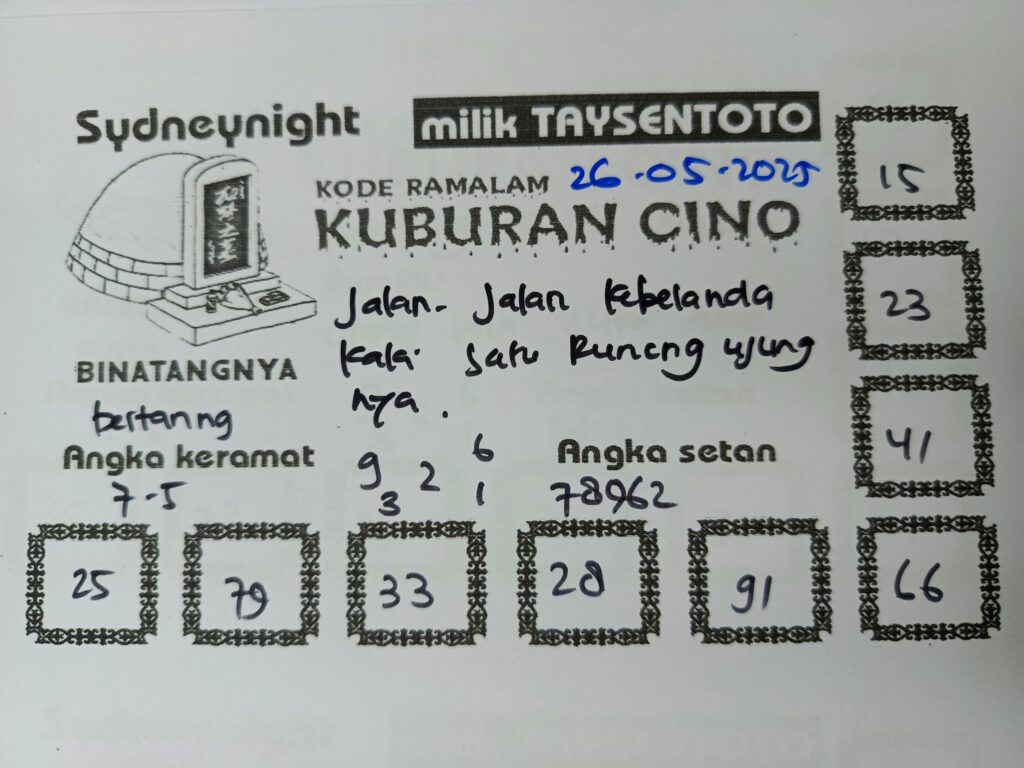 Sydneynight
milik TAYSENTOTO
KODE RAMALAM 26-05-2025
KUBURAN CINO
Jalan-Jalan kebelanda
kala satu Runcng ujung
nya.
BINATANGNYA
bertanng
Angka keramat
7-5
9 2 6
3 1
Angka setan
78962
15
23
41
25 79 33 28 91 66